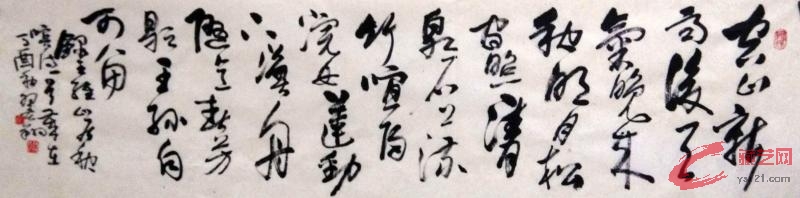 空山新
雨後天
氣晚来
秋明月松
间照清
泉石上流
竹喧歸
浣女蓮動
下漁舟
隨意春芳
歇王孫自
可留
録王維山居秋
暝詩一首
丁酉秋
艺网